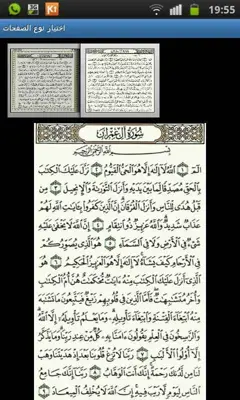 19:55
اختيار نوع الصفحات
سُورَةُ آلِ عِمْرَان
بِسْمِ ٱللَّهِ ٱلرَّحْمَٰنِ ٱلرَّحِيمِ
الٓمٓ ١ ٱللَّهُ لَآ إِلَٰهَ إِلَّا هُوَ ٱلْحَىُّ ٱلْقَيُّومُ ٢ نَزَّلَ عَلَيْكَ ٱلْكِتَٰبَ
بِٱلْحَقِّ مُصَدِّقًا لِّمَا بَيْنَ يَدَيْهِ وَأَنزَلَ ٱلتَّوْرَىٰةَ وَٱلْإِنجِيلَ ٣
مِن قَبْلُ هُدًى لِّلنَّاسِ وَأَنزَلَ ٱلْفُرْقَانَ إِنَّ ٱلَّذِينَ كَفَرُوا۟ بِـَٔايَٰتِ ٱللَّهِ لَهُمْ
عَذَابٌ شَدِيدٌ وَٱللَّهُ عَزِيزٌ ذُو ٱنتِقَامٍ ٤ إِنَّ ٱللَّهَ لَا يَخْفَىٰ عَلَيْهِ
شَىْءٌ فِى ٱلْأَرْضِ وَلَا فِى ٱلسَّمَآءِ ٥ هُوَ ٱلَّذِى يُصَوِّرُكُمْ
فِى ٱلْأَرْحَامِ كَيْفَ يَشَآءُ لَآ إِلَٰهَ إِلَّا هُوَ ٱلْعَزِيزُ ٱلْحَكِيمُ ٦ هُوَ ٱلَّذِىٓ
أَنزَلَ عَلَيْكَ ٱلْكِتَٰبَ مِنْهُ ءَايَٰتٌ مُّحْكَمَٰتٌ هُنَّ أُمُّ ٱلْكِتَٰبِ
وَأُخَرُ مُتَشَٰبِهَٰتٌ فَأَمَّا ٱلَّذِينَ فِى قُلُوبِهِمْ زَيْغٌ فَيَتَّبِعُونَ مَا تَشَٰبَهَ
مِنْهُ ٱبْتِغَآءَ ٱلْفِتْنَةِ وَٱبْتِغَآءَ تَأْوِيلِهِۦ وَمَا يَعْلَمُ تَأْوِيلَهُۥٓ إِلَّا
ٱللَّهُ وَٱلرَّٰسِخُونَ فِى ٱلْعِلْمِ يَقُولُونَ ءَامَنَّا بِهِۦ كُلٌّ مِّنْ عِندِ رَبِّنَا وَمَا يَذَّكَّرُ
إِلَّآ أُو۟لُوا۟ ٱلْأَلْبَٰبِ ٧ رَبَّنَا لَا تُزِغْ قُلُوبَنَا بَعْدَ إِذْ هَدَيْتَنَا وَهَبْ
لَنَا مِن لَّدُنكَ رَحْمَةً إِنَّكَ أَنتَ ٱلْوَهَّابُ ٨ رَبَّنَآ إِنَّكَ جَامِعُ
ٱلنَّاسِ لِيَوْمٍ لَّا رَيْبَ فِيهِ إِنَّ ٱللَّهَ لَا يُخْلِفُ ٱلْمِيعَادَ ٩